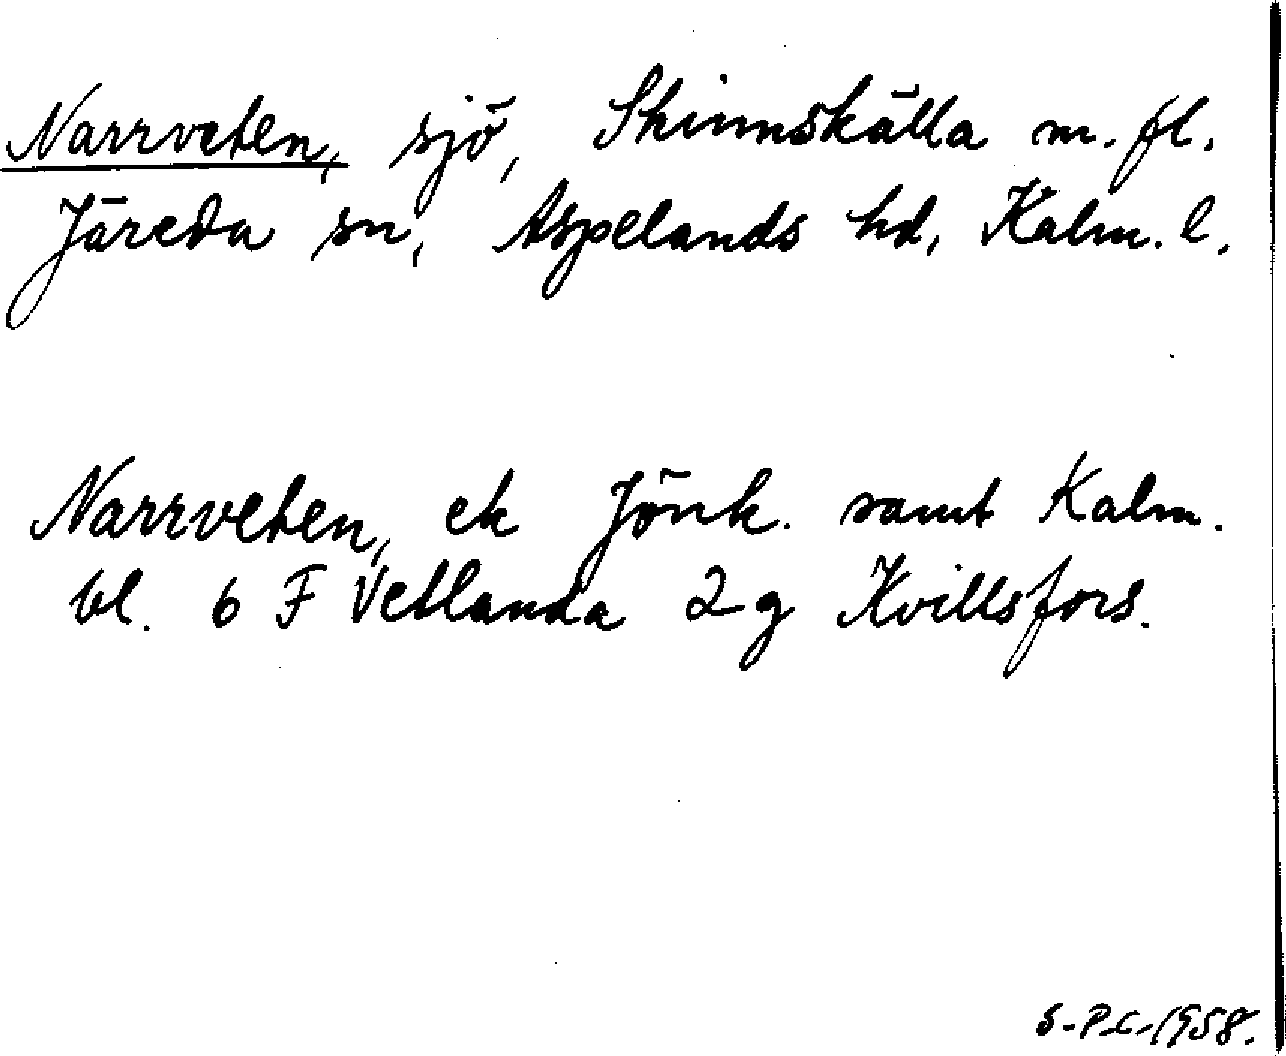 Narrveten, sjö, Skinnskälla m. fl.
Järeda sn, Aspelands hd, Kalm. l.
Narrveten, ek Jönk. samt Kalm.
bl. 6 F Vetlanda 2g Kvillsfors.
S-P.C-1958.